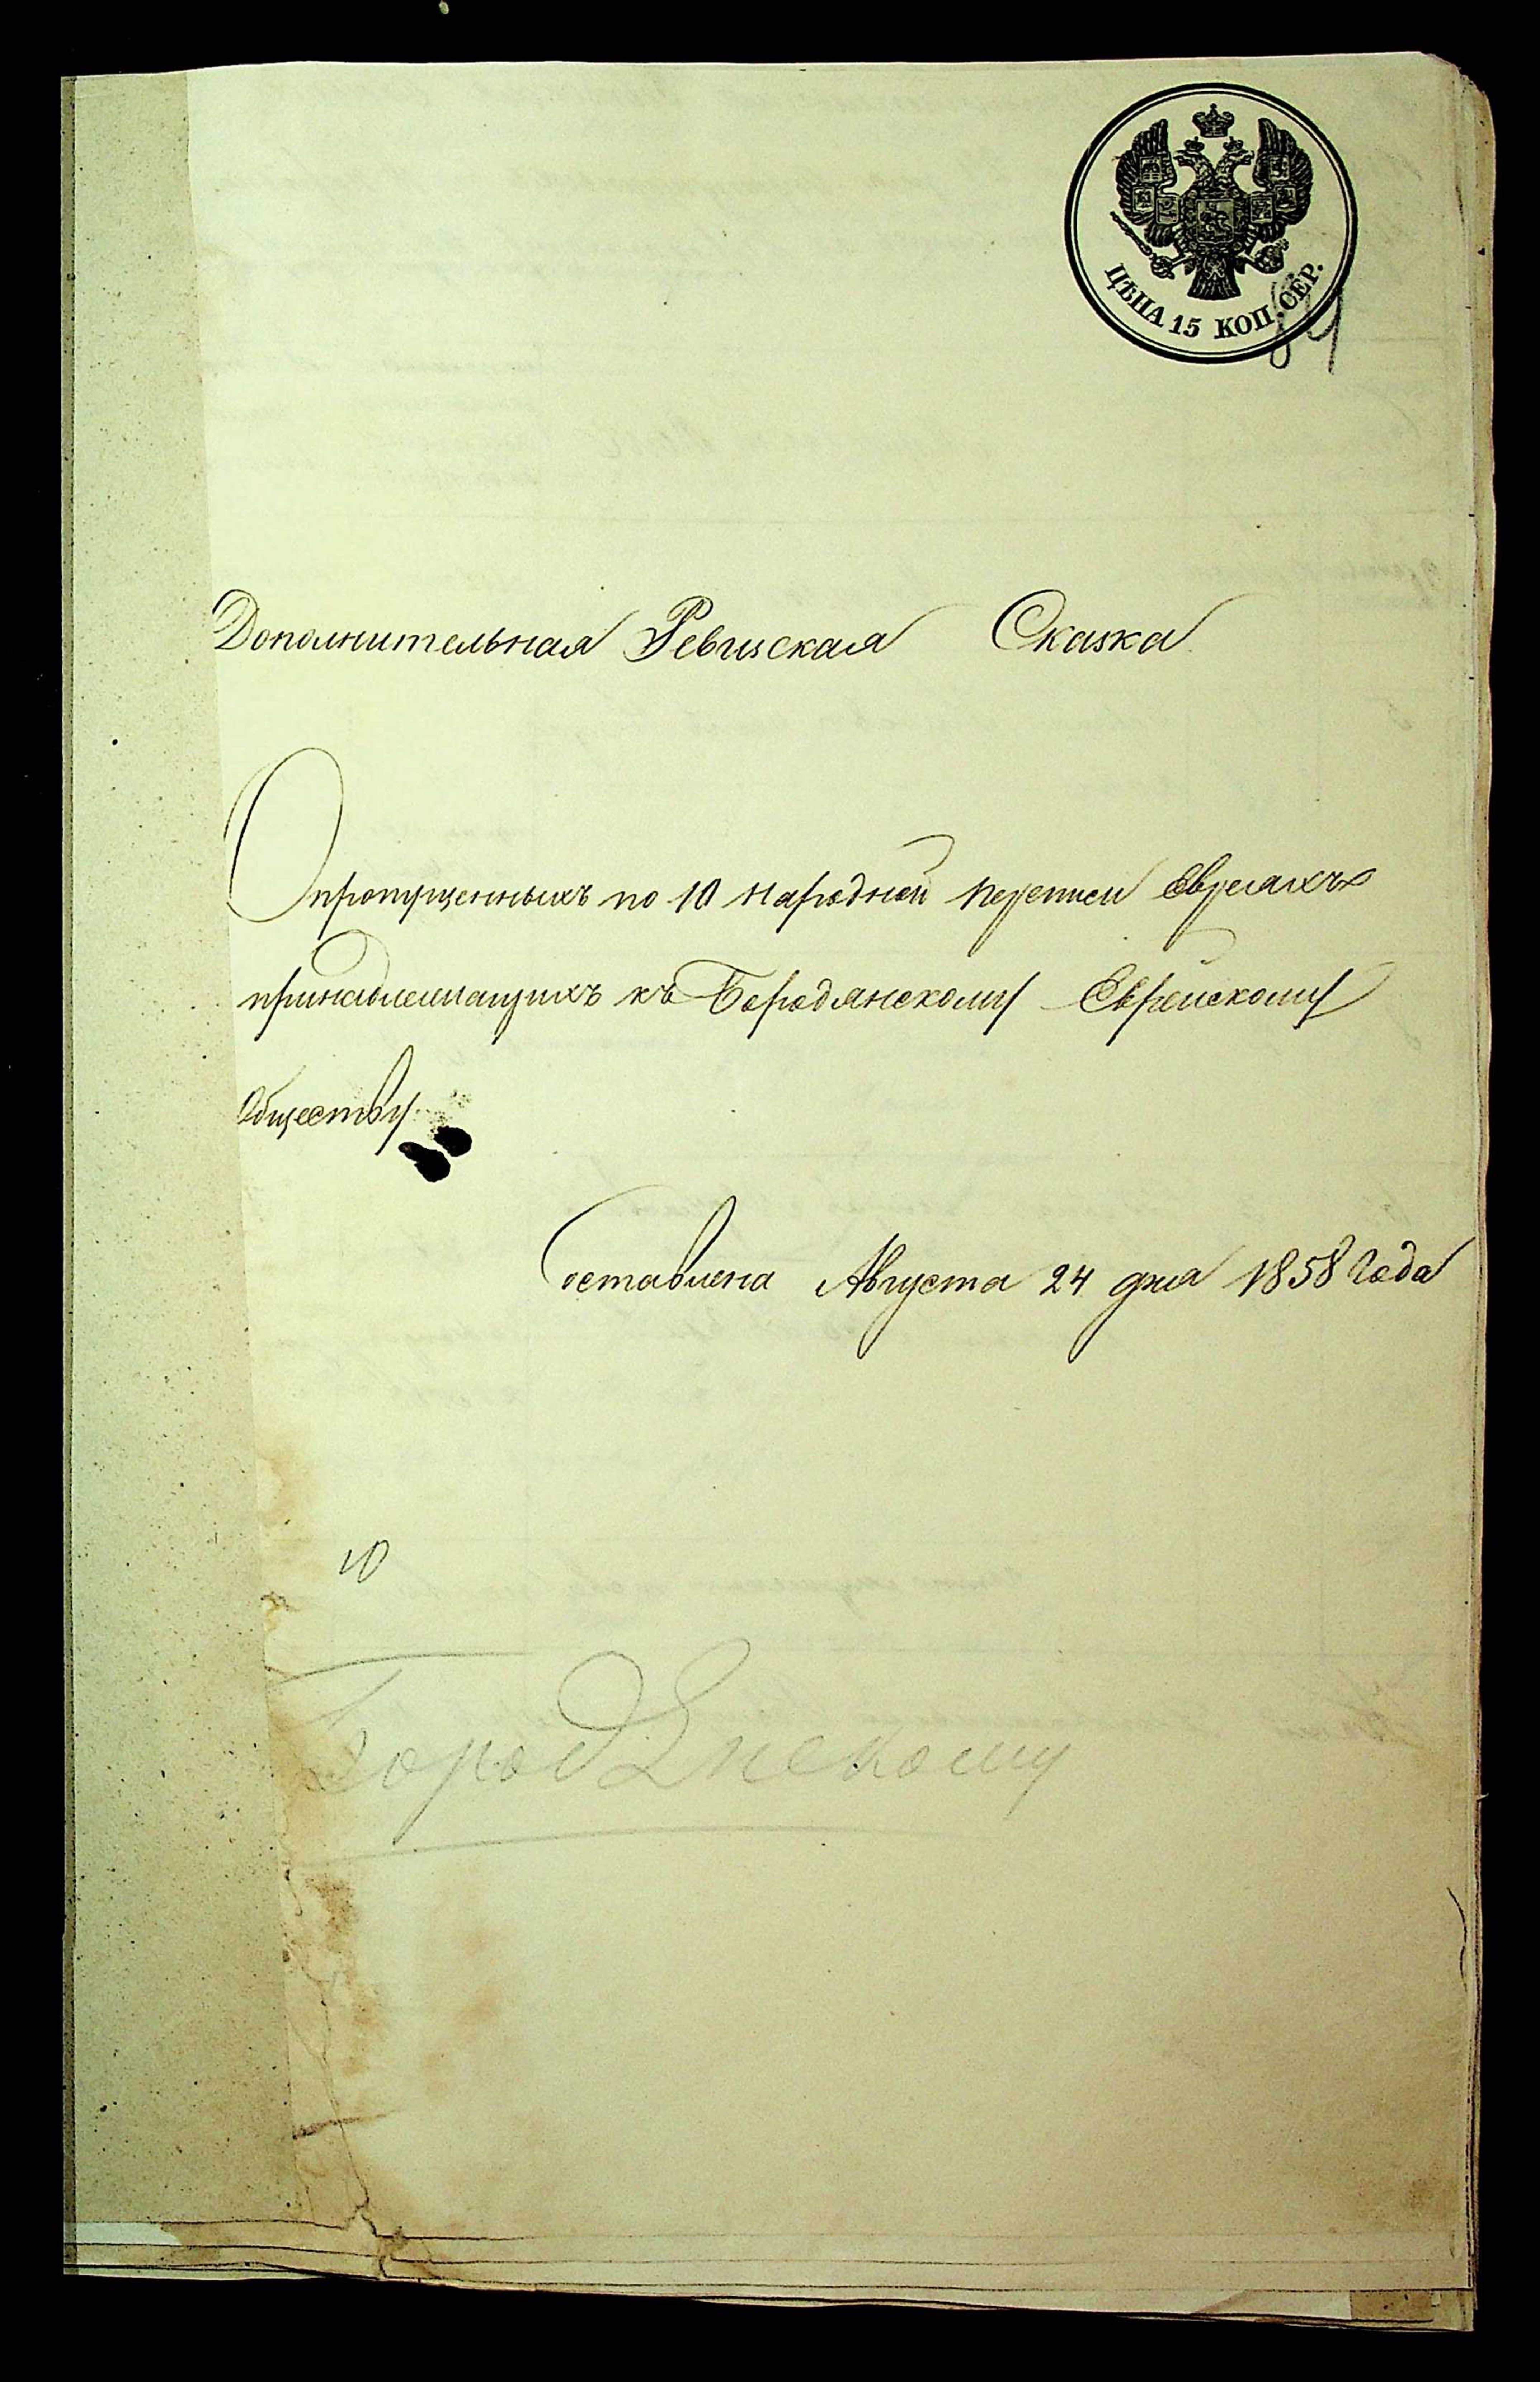 ЦѢНА 15 КОП. СЕР.
Дополнительная Ревизская Сказка
О пропущенныхъ по 10 народной переписи Евреяхъ
принадлежащихъ къ Бородянскому Еврейскому
Обществу
Составлена Августа 24 дня 1858 года
10
Бородянскому